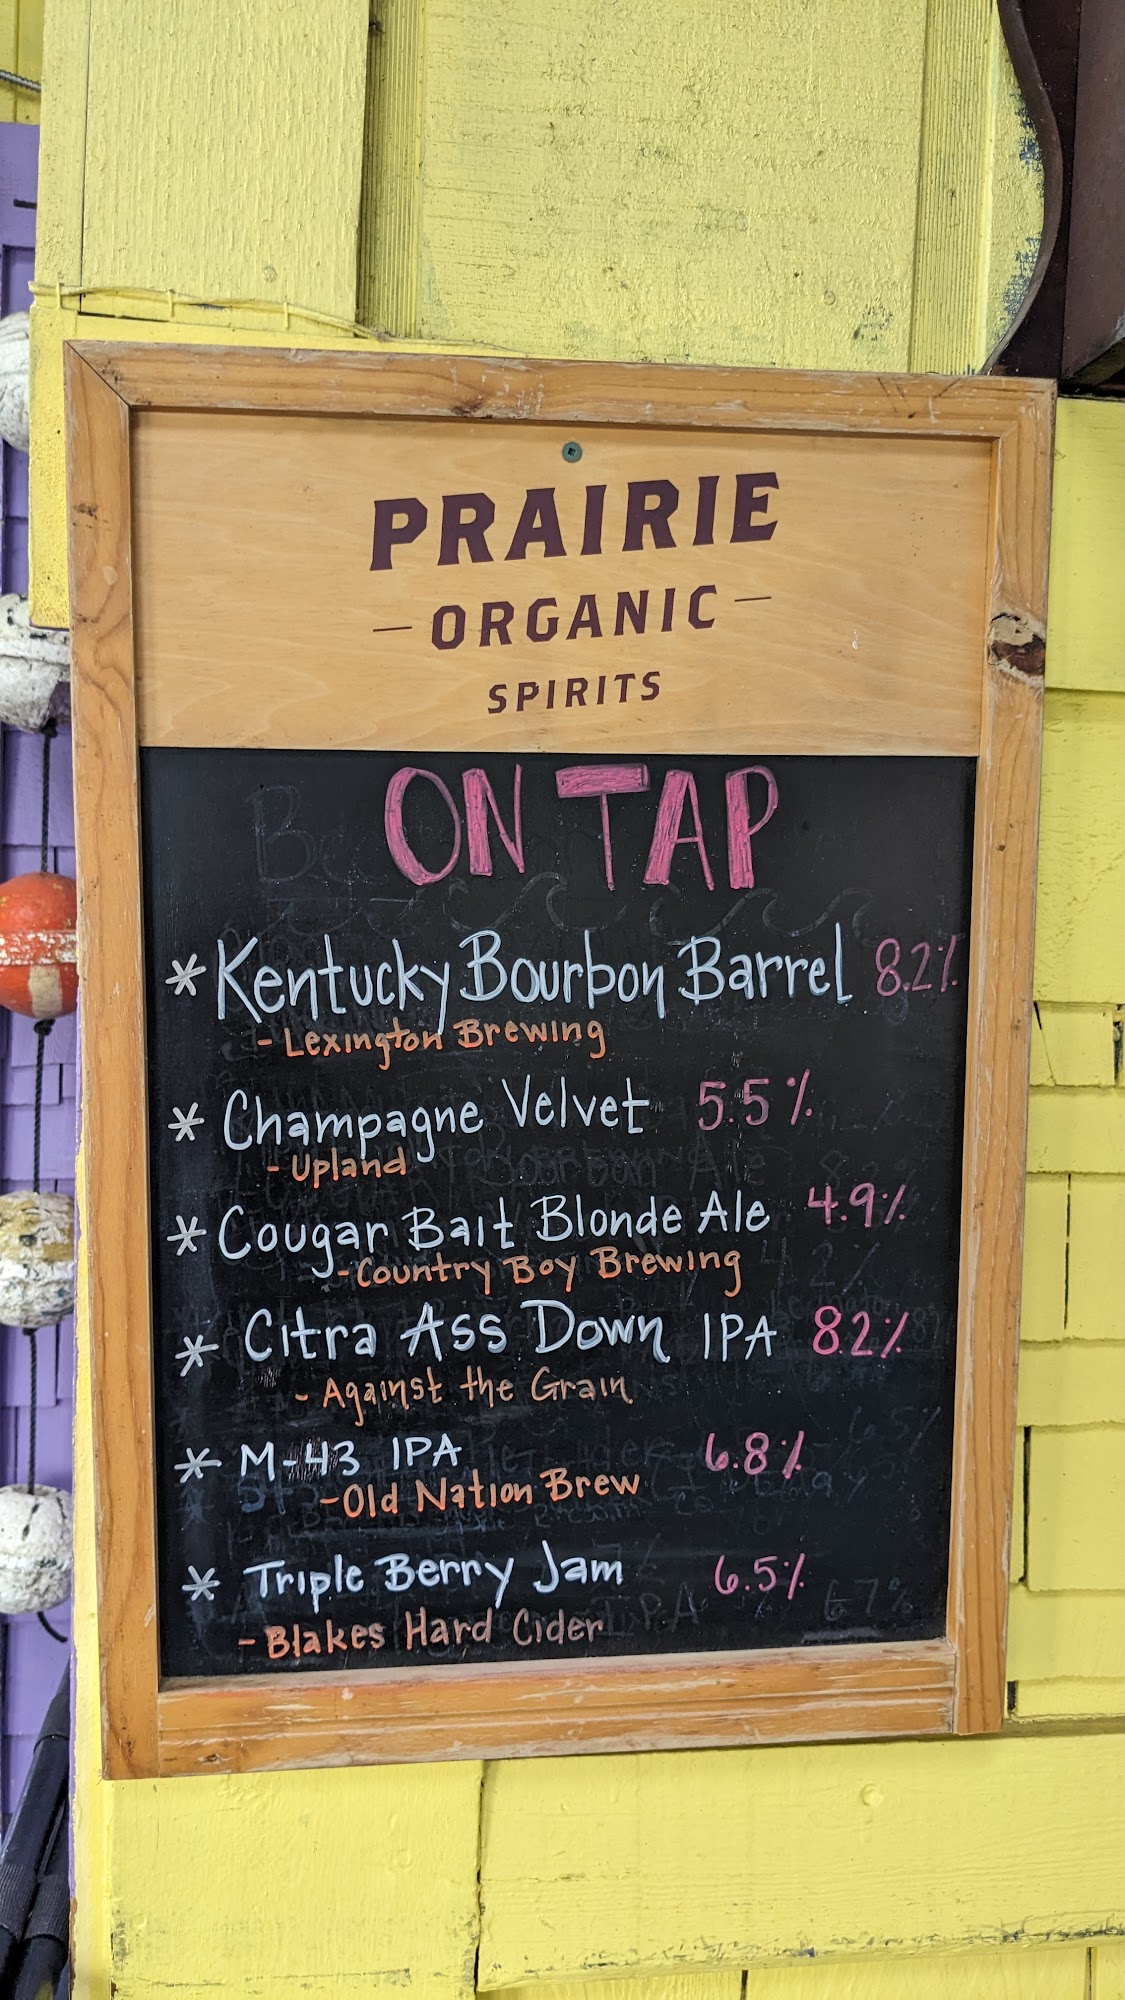 PRAIRIE
- ORGANIC -
SPIRITS
ON TAP
* Kentucky Bourbon Barrel 8.2%
- Lexington Brewing
* Champagne Velvet 5.5%
- Upland
* Cougar Bait Blonde Ale 4.9%
- Country Boy Brewing
* Citra Ass Down IPA 8.2%
- Against the Grain
* M-43 IPA 6.8%
- Old Nation Brew
* Triple Berry Jam 6.5%
- Blakes Hard Cider